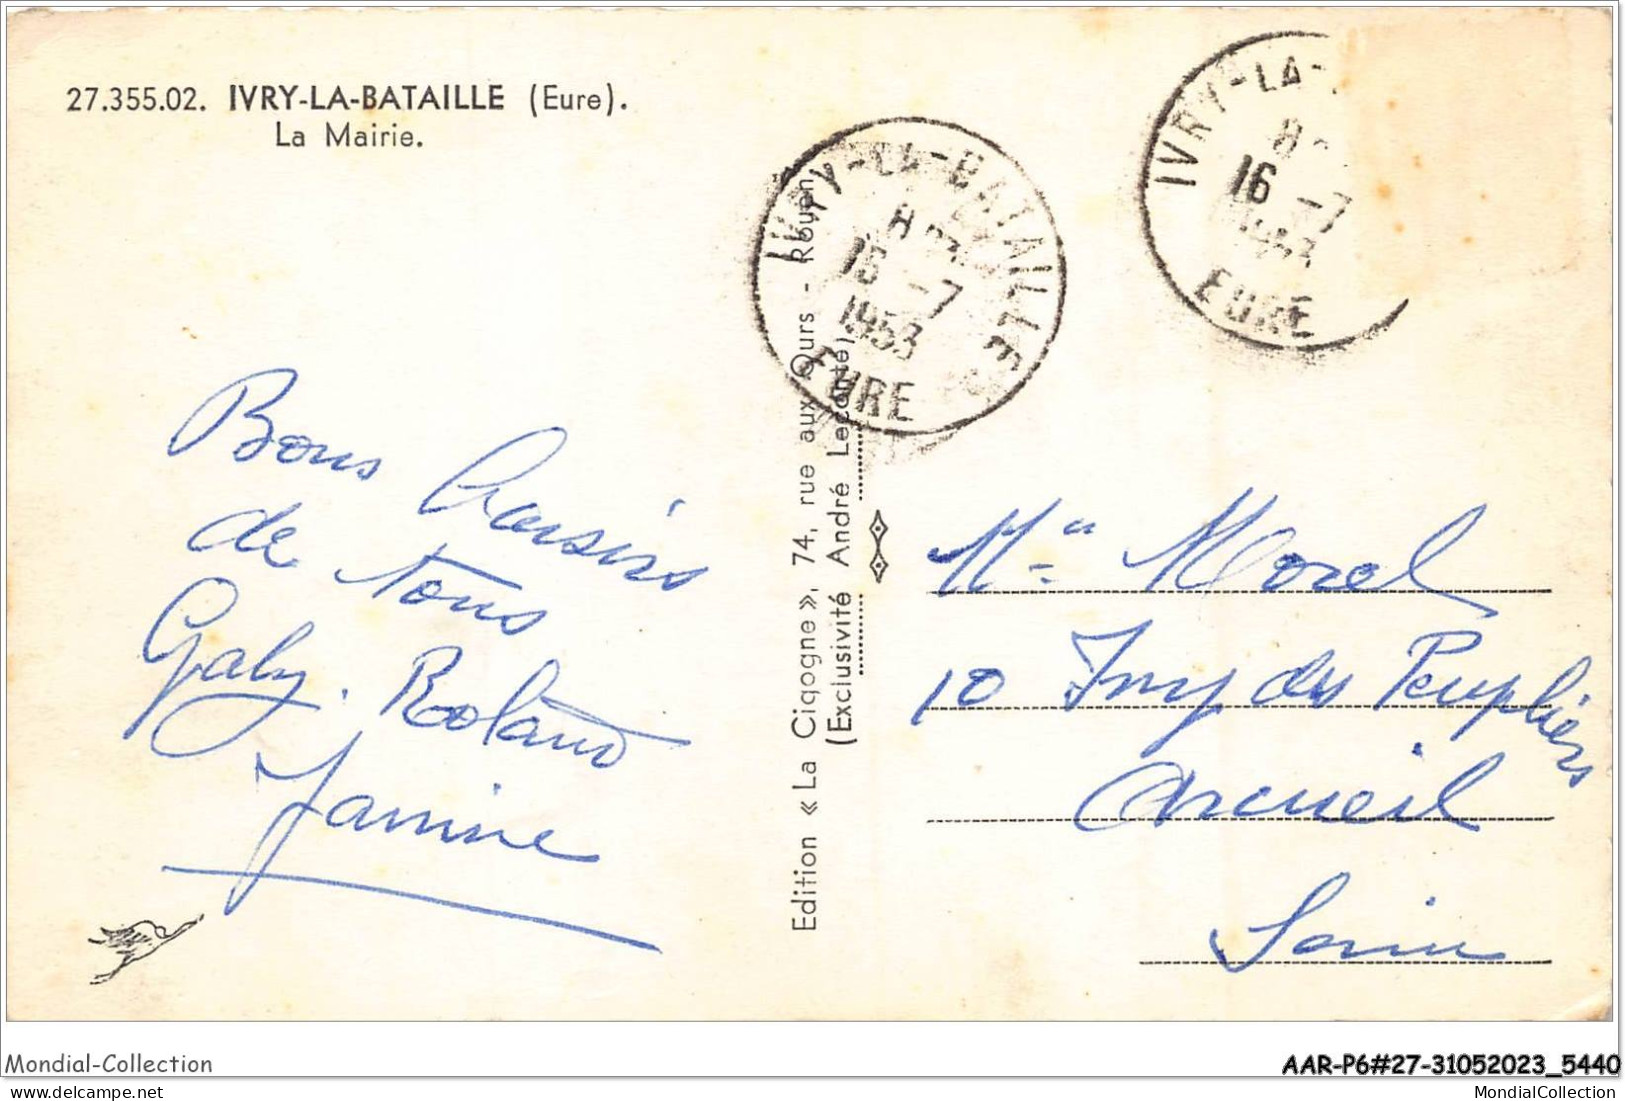 27.355.02. IVRY-LA-BATAILLE (Eure).
La Mairie.
IVRY-LA-BATAILLE
16 -7
1953
EURE
IVRY-LA-
16 -7
EURE
Bons baisirs
de tous
Gaby. Roland
Janine
Edition « La Cigogne », 74, rue aux Ours - Rouen
(Exclusivité André Lecomte)
Morel
10 Imp des Peupliers
Arcueil
Seine
Mondial-Collection
AAR-P6#27-31052023_5440
delcampe.net
MondialCollection